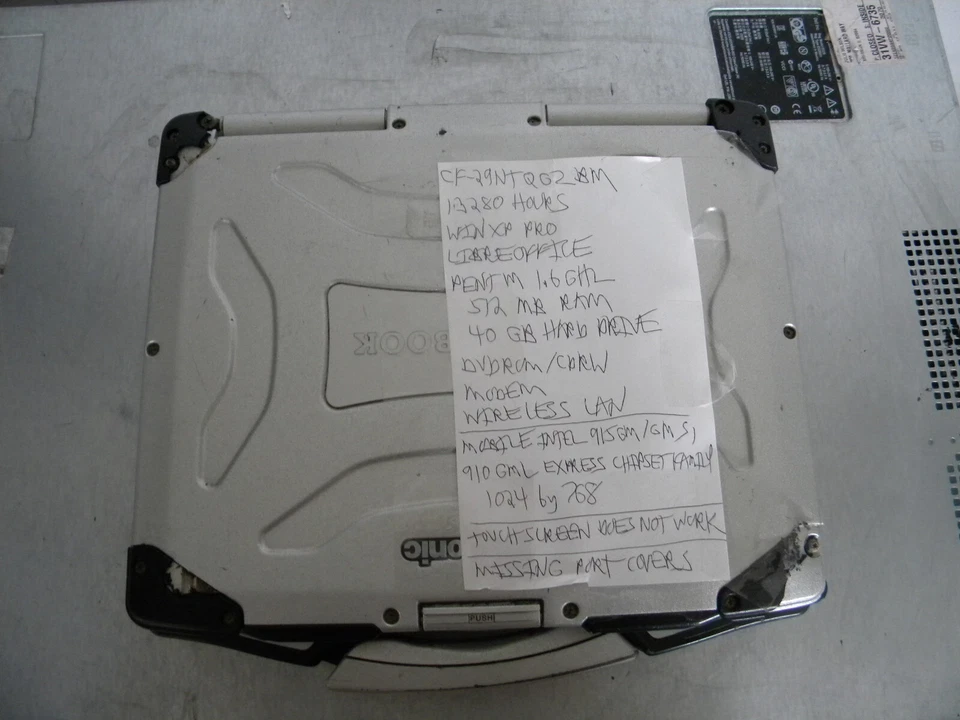 CF-29NTQGZBM
13280 HOURS
WINXP PRO
LIBREOFFICE
PENTM 1.6 GHZ
512 MB RAM
40 GB HARD DRIVE
DVDROM/CDRW
MODEM
WIRELESS LAN
MOBILE INTEL 915GM/GMS,
910 GML EXPRESS CHIPSET FAMILY
1024 by 768
TOUCHSCREEN DOES NOT WORK
MISSING PORT COVERS
BOOK
onic
PUSH
31VW-6735